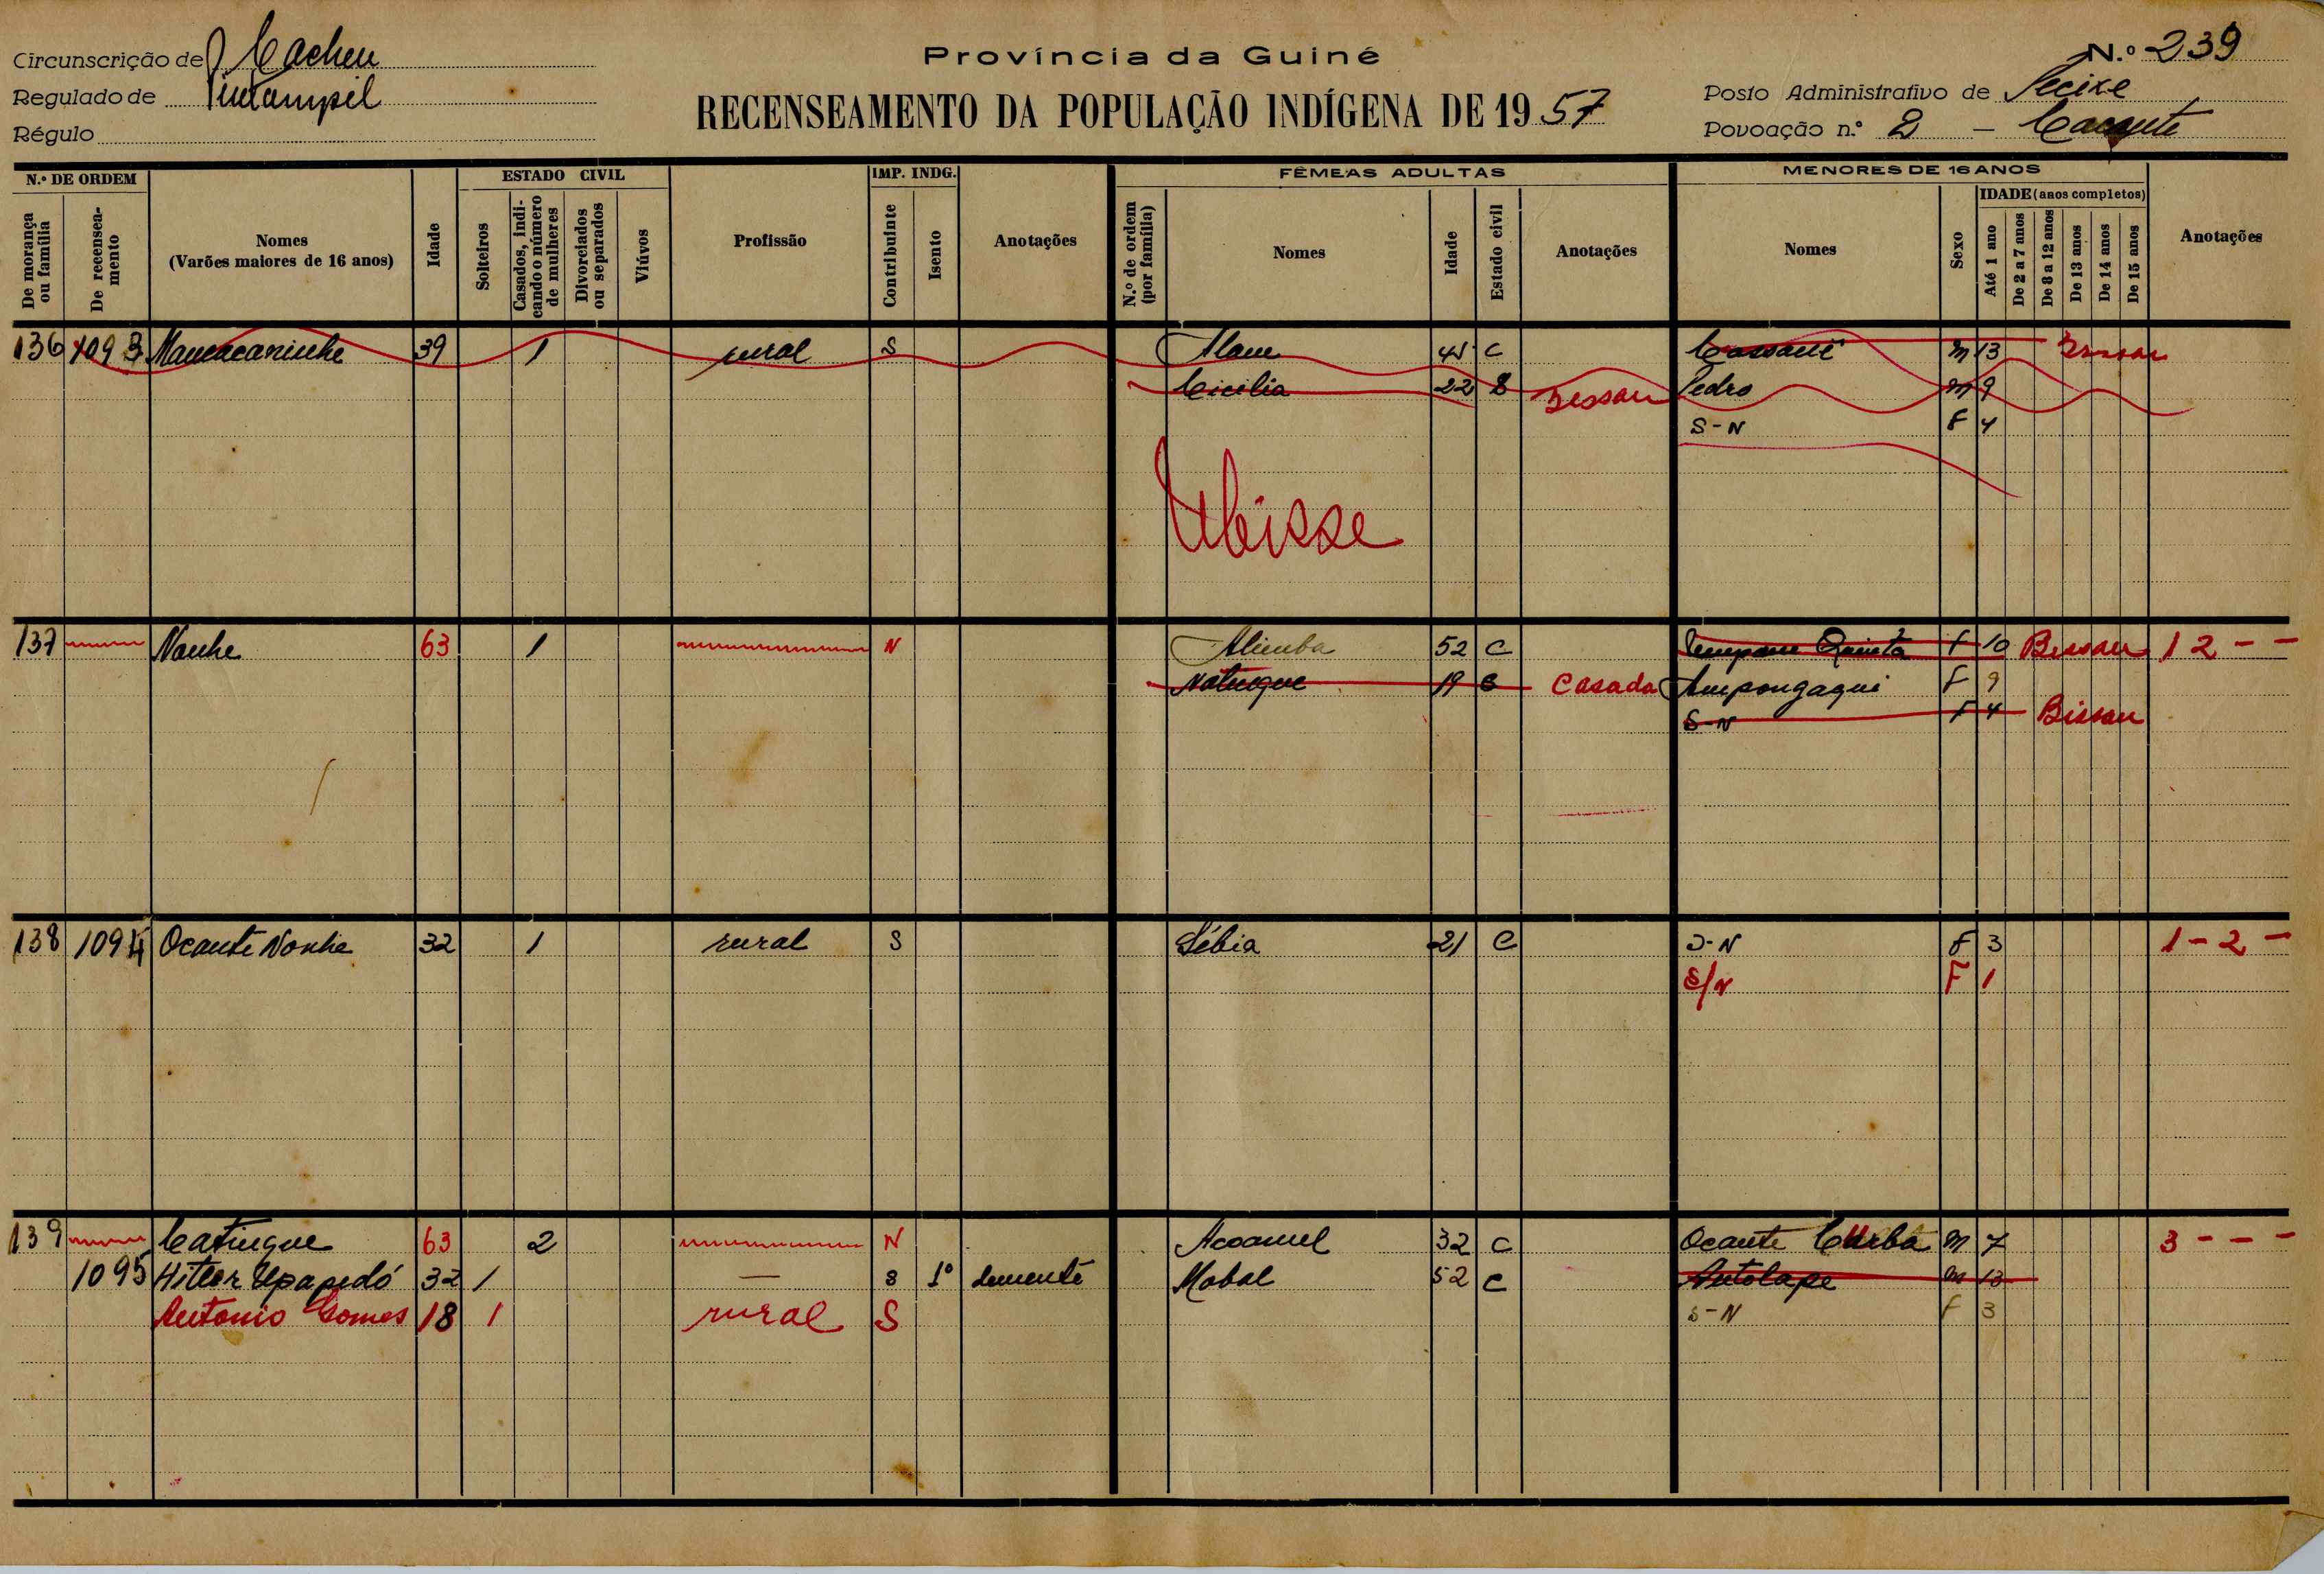 Província da Guiné
N.º 239
Circunscrição de Cacheu
Regulado de
Régulo
RECENSEAMENTO DA POPULAÇÃO INDÍGENA DE 1957
Posto Administrativo de Pecixe
Povoação n.º 2 –
N.º DE ORDEM
De morança ou família
De recenseamento
Nomes
(Varões maiores de 16 anos)
Idade
ESTADO CIVIL
Solteiros
Casados, indicando o número de mulheres
Divorciados ou separados
Viúvos
Profissão
IMP. INDG.
Contribuinte
Isento
Anotações
FÊMEAS ADULTAS
N.º de ordem (por família)
Nomes
Idade
Estado civil
Anotações
MENORES DE 16 ANOS
Nomes
Sexo
IDADE (anos completos)
Até 1 ano
De 2 a 7 anos
De 8 a 12 anos
De 13 anos
De 14 anos
De 15 anos
Anotações
136 1093 39 1 rural S C M 13 Bissau
Cicilia 22 S Bissau Pedro M 9
S-N F 4
137 Nonhe 63 1 N Alimba 52 C F 10 Bissau 1 2 - -
Natingue 19 S Casada Ampongaqui F 9
S-N F 4 Bissau
138 1094 Ocante Nonhe 32 1 rural S Sébia 21 C S-N F 3 1 - 2 -
S/N F 1
139 Catingue 63 2 N Acoamel 32 C Ocante M 7 3 - - -
1095 Hitler Upapedó 32 1 — S 1º demente Mobal 52 C Antolape M 13
Antonio Gomes 18 1 rural S S-N F 3